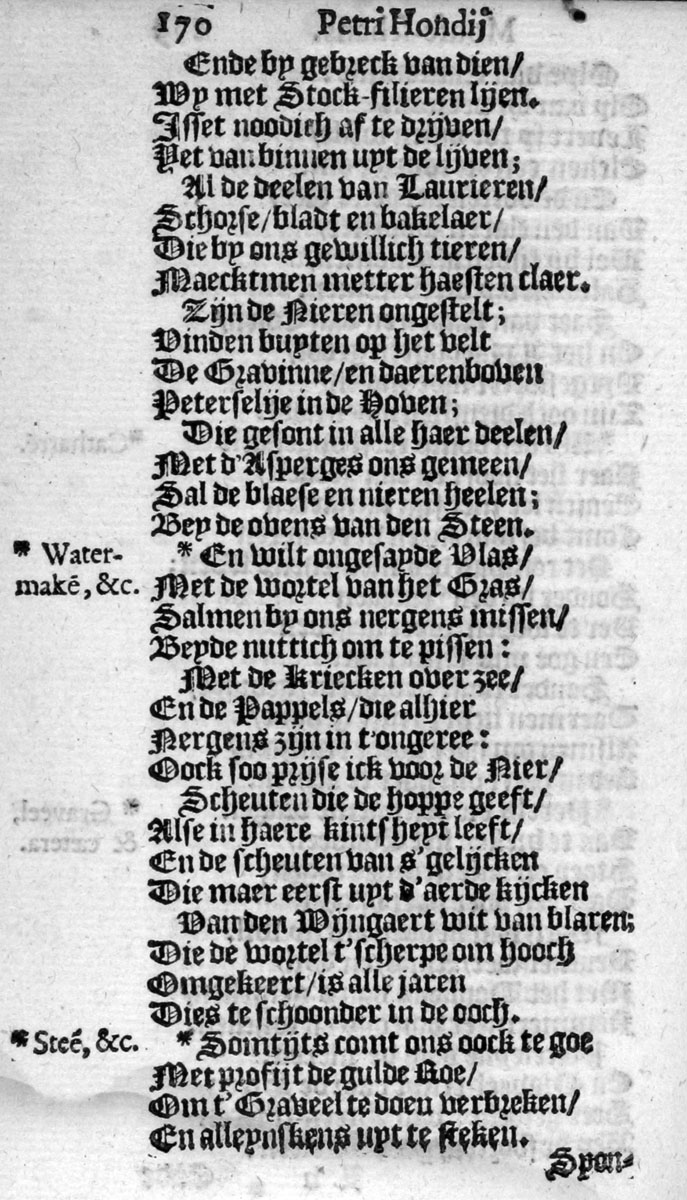 170 Petri Hondij
Ende by gebreck van dien/
Wy met Stock-filieren lijen.
Isset noodich af te drijven/
Yet van binnen uyt de lijven;
Al de deelen van Laurieren/
Schorse/bladt en bakelaer/
Die by ons gewillich tieren/
Maecktmen metter haesten claer.
Zijn de Nieren ongestelt;
Vinden buyten op het velt
De Gravinne/en daerenboven
Peterselije in de Hoven;
Die gesont in alle haer deelen/
Met d'Asperges ons gemeen/
Sal de blaese en nieren heelen;
Bey de ovens van den Steen.
* Water- * En wilt ongesayde Vlas/
makē, &c. Met de wortel van het Gras/
Salmen by ons nergens missen/
Beyde nuttich om te pissen:
Met de Kriecken over zee/
En de Pappels/die alhier
Nergens zijn in t'ongeree:
Oock soo prijse ick voor de Nier/
Scheuten die de hoppe geeft/
Alse in haere kintsheyt leeft/
En de scheuten van s'gelijcken
Die maer eerst uyt d'aerde kijcken
Van den Wijngaert wit van blaren;
Die de wortel t'scherpe om hooch
Omgekeert/is alle jaren
Dies te schoonder in de ooch.
* Steē, &c. * Somtijts comt ons oock te goe
Met profijt de gulde Roe/
Om t'Graveel te doen verbreken/
En alleynskens uyt te steken.
Span-